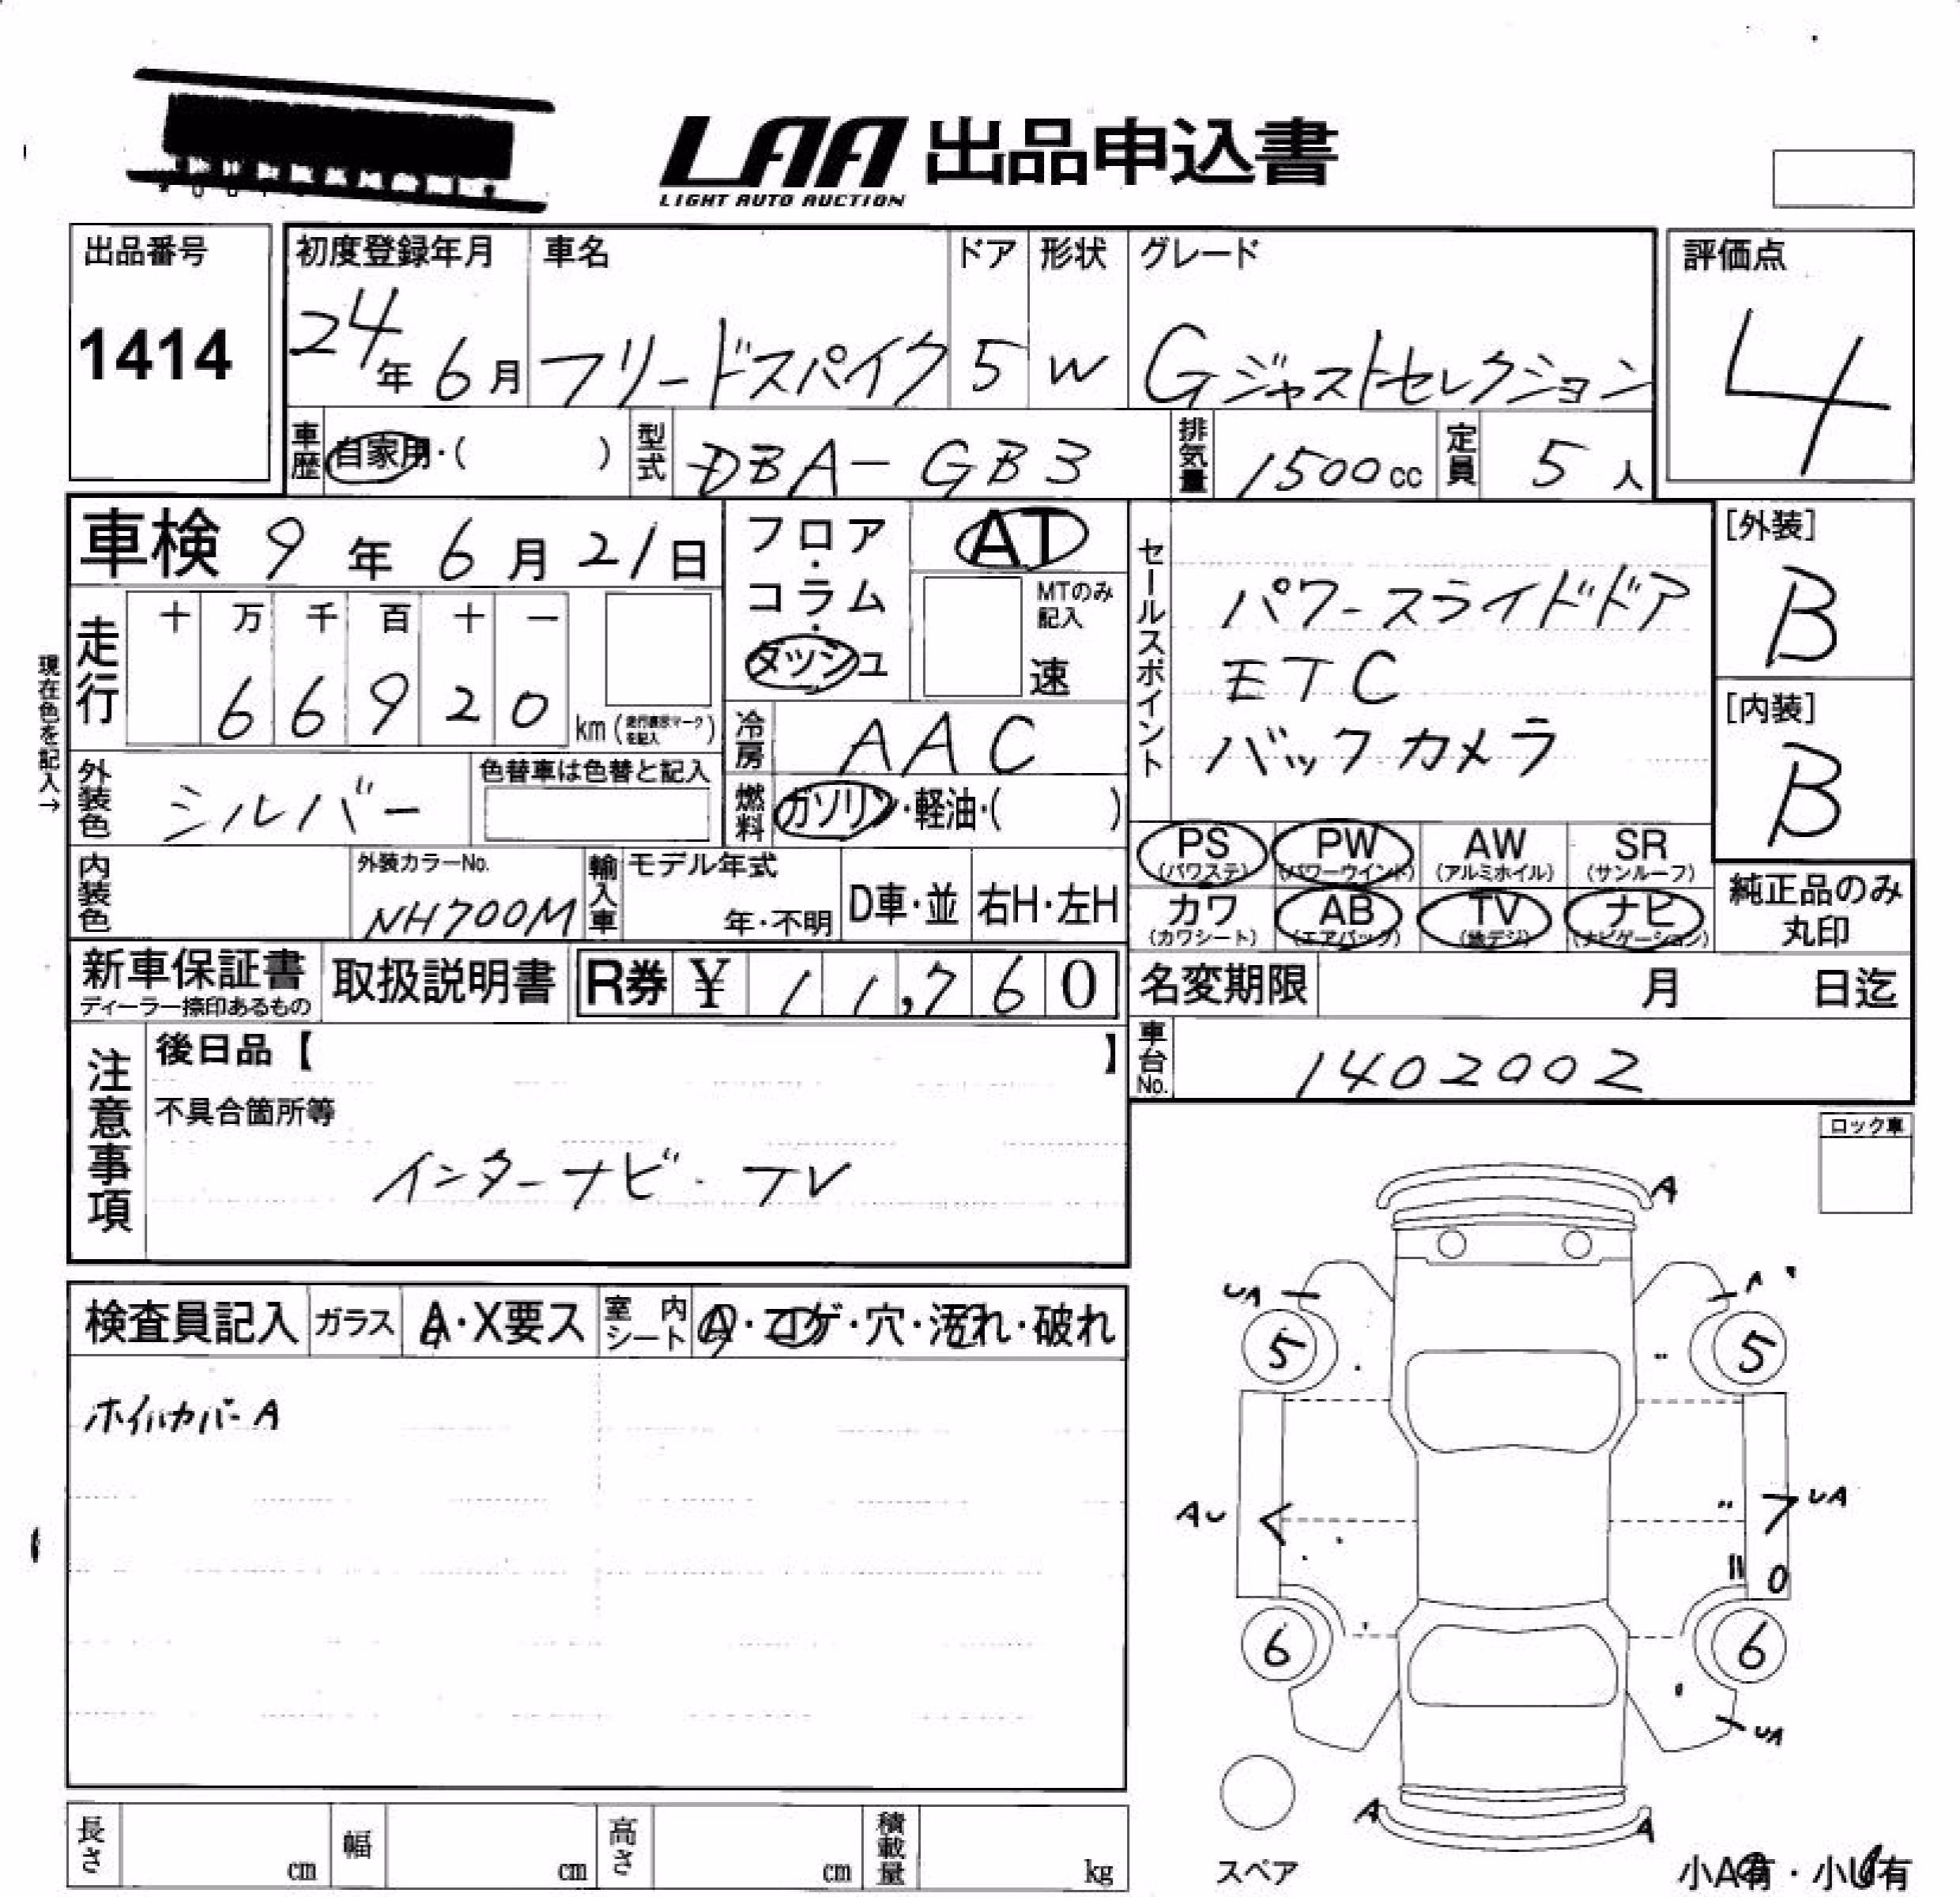 LAA 出品申込書
LIGHT AUTO AUCTION
出品番号
1414
初度登録年月
24年 6月
車名
フリードスパイク
ドア
5
形状
W
グレード
Gジャストセレクション
評価点
4
車歴 自家用・( )
型式 DBA-GB3
排気量 1500cc
定員 5人
車検 9年 6月 21日
フロア・コラム・ダッシュ
AT
MTのみ記入
速
現在色を記入→
走行
十 万 千 百 十 一
6 6 9 2 0 km (走行表示マークを記入)
冷房 AAC
外装色 シルバー
色替車は色替と記入
燃料 ガソリン・軽油・( )
セールスポイント
パワースライドドア
ETC
バックカメラ
[外装]
B
[内装]
B
PS (パワステ)
PW (パワーウインド)
AW (アルミホイル)
SR (サンルーフ)
カワ (カワシート)
AB (エアバッグ)
TV (地デジ)
ナビ (ナビゲーション)
純正品のみ丸印
内装色
外装カラーNo.
NH700M
輸入車
モデル年式
年・不明
D車・並
右H・左H
新車保証書
ディーラー捺印あるもの
取扱説明書
R券 ¥ 11,760
名変期限 月 日迄
車台No. 1402002
注意事項
後日品【 】
不具合箇所等
インターナビ・TV
ロック車
検査員記入
ガラス A・X要ス
室内シート A・コゲ・穴・汚れ・破れ
ホイルカバーA
A
UA
A
5
5
AU
UA
〃
0
6
6
UA
A
A
スペア
小A有・小U有
長さ cm
幅 cm
高さ cm
積載量 kg